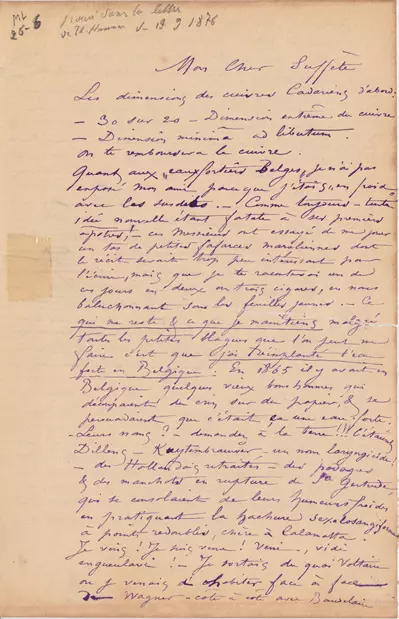 ML
25-6
trouvé dans la lettre
de Th. Hannon d. 19 9 1876
Mon Cher Suffète
Les dimensions des cuivres Cadarens d'abord:
- 30 sur 20 - Dimension extrême du cuivre
- Dimension minima ad libitum.
On te remboursera le cuivre.
Quant aux "eaufortiers Belges", je n'ai pas
exposé mon ami parceque j'étais, en froid
avec les susdits. - Comme toujours - toute
idée nouvelle étant fatale à ses premiers
apôtres! - ces Messieurs ont essayé de me jouer
un tas de petites farces maroliennes dont
le récit serait trop peu intéressant pour
l'écrire, mais que je te raconterai un de
ces jours en deux ou trois cigares, en nous
balochonnant sous les feuilles jaunes. - Ce
qui me reste & ce que je maintiens malgré
toutes les petites blagues que l'on peut me
faire c'est que j'ai Réimplanté l'eau
forte en Belgique. - En 1865 il y avait en
Belgique quelques vieux bonshommes qui
découpaient du crin sur du papier, & se
persuadaient que c'était ça une eau forte.
- Leurs noms? - demandez à la terre!!! C'étaient
Dillens - Kuytenbrouwer, un nom laryngicide!
- des Hollandais retraités - des podagres
& des manchots en rupture de Ste Gertrude,
qui se consolaient de leurs humeurs froides
en pratiquant la hachure
à points redoublés, chère à Calamatta.
Je vins! Je suis venu! Veni -, vidi
engueulavi! - Je sortais de quoi Voltaire
ou je venais d'habiter face à face
de Wagner - côte à côte avec Baudelaire